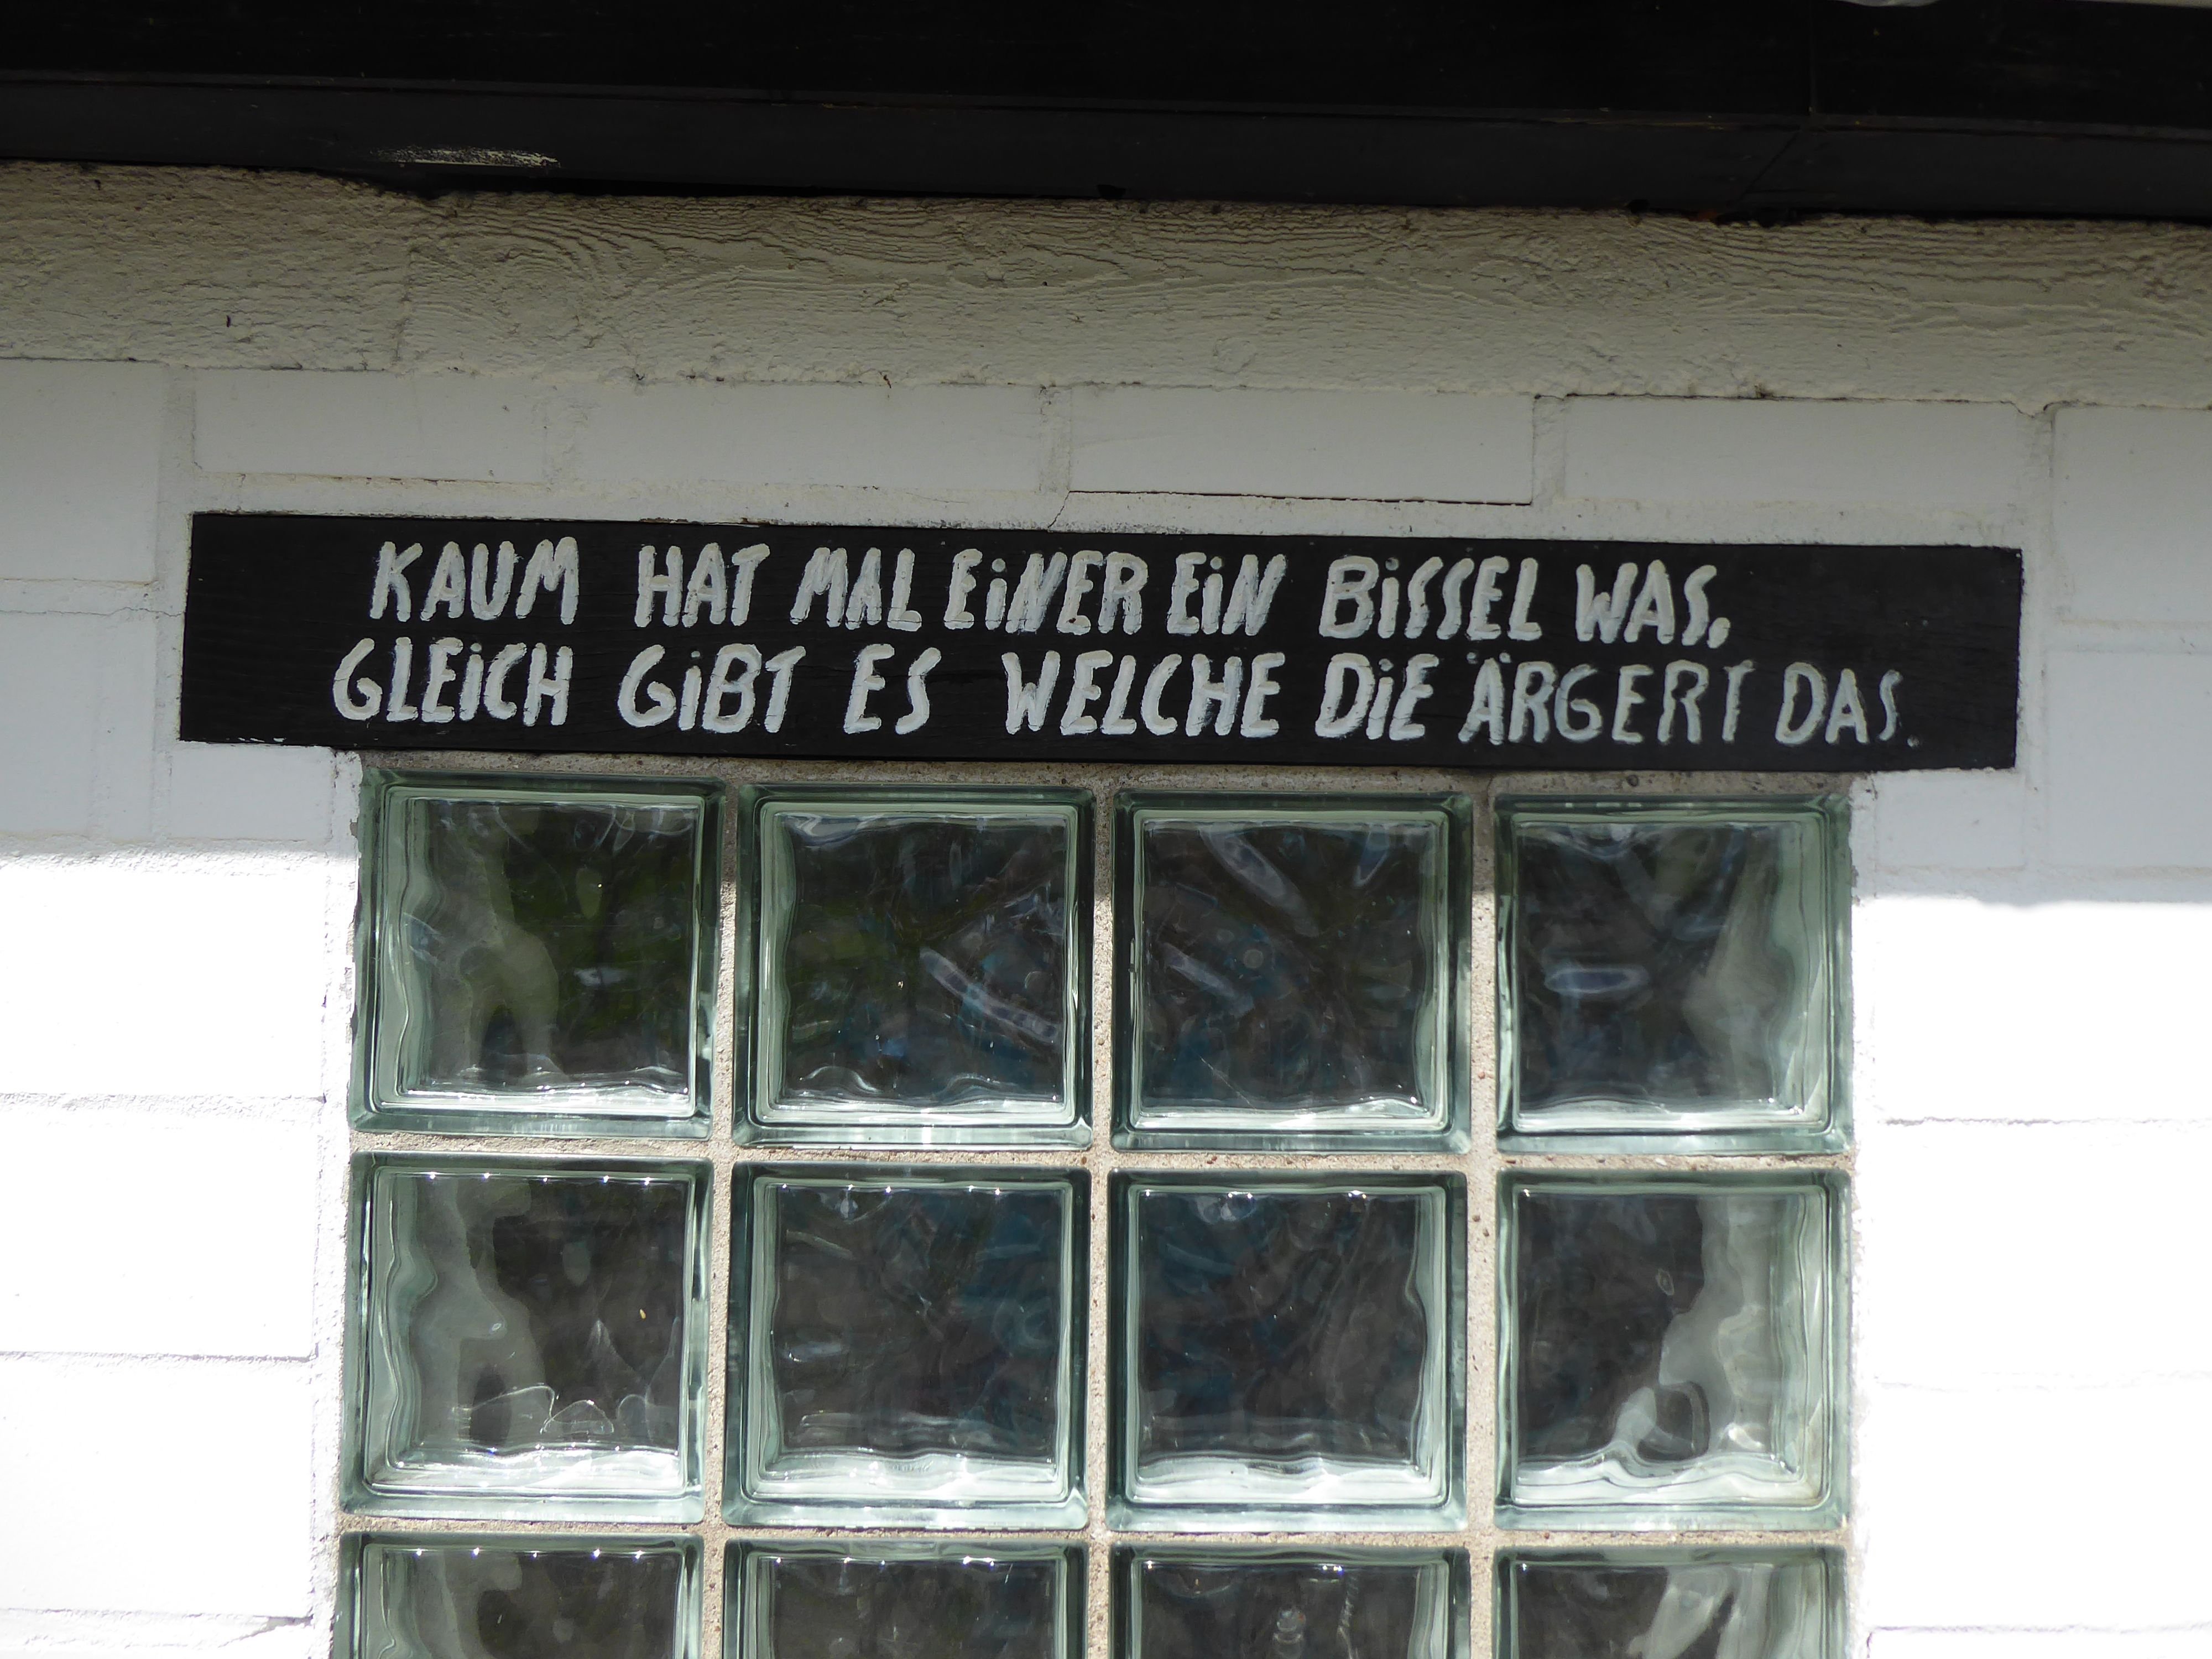 KAUM HAT MAL EiNER EiN BiSSEL WAS,
GLEiCH GiBT ES WELCHE DiE ÄRGERT DAS.